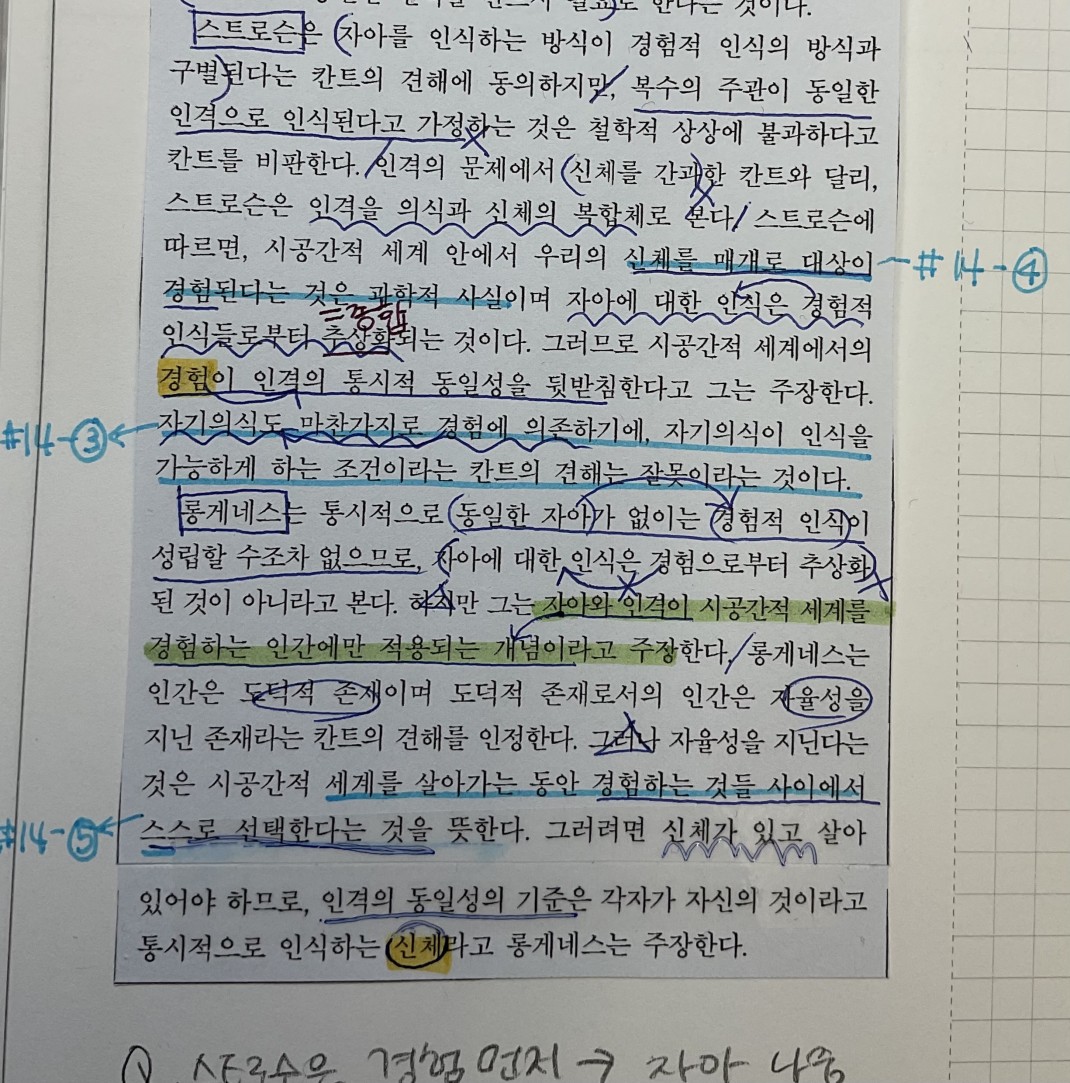 도 안다는 것이다.
스트로슨은 자아를 인식하는 방식이 경험적 인식의 방식과
구별된다는 칸트의 견해에 동의하지만, 복수의 주관이 동일한
인격으로 인식된다고 가정하는 것은 철학적 상상에 불과하다고
칸트를 비판한다. 인격의 문제에서 신체를 간과한 칸트와 달리,
스트로슨은 인격을 의식과 신체의 복합체로 본다. 스트로슨에
따르면, 시공간적 세계 안에서 우리의 신체를 매개로 대상이
#14-④
경험된다는 것은 과학적 사실이며 자아에 대한 인식은 경험적
=종합
인식들로부터 추상화되는 것이다. 그러므로 시공간적 세계에서의
경험이 인격의 통시적 동일성을 뒷받침한다고 그는 주장한다.
#14-③
자기의식도 마찬가지로 경험에 의존하기에, 자기의식이 인식을
가능하게 하는 조건이라는 칸트의 견해는 잘못이라는 것이다.
롱게네스는 통시적으로 동일한 자아가 없이는 경험적 인식이
성립할 수조차 없으므로, 자아에 대한 인식은 경험으로부터 추상화
된 것이 아니라고 본다. 하지만 그는 자아와 인격이 시공간적 세계를
경험하는 인간에만 적용되는 개념이라고 주장한다. 롱게네스는
인간은 도덕적 존재이며 도덕적 존재로서의 인간은 자율성을
지닌 존재라는 칸트의 견해를 인정한다. 그러나 자율성을 지닌다는
것은 시공간적 세계를 살아가는 동안 경험하는 것들 사이에서
#14-⑤
스스로 선택한다는 것을 뜻한다. 그러려면 신체가 있고 살아
있어야 하므로, 인격의 동일성의 기준은 각자가 자신의 것이라고
통시적으로 인식하는 신체라고 롱게네스는 주장한다.
Q. 경험 먼저 → 자아 나중